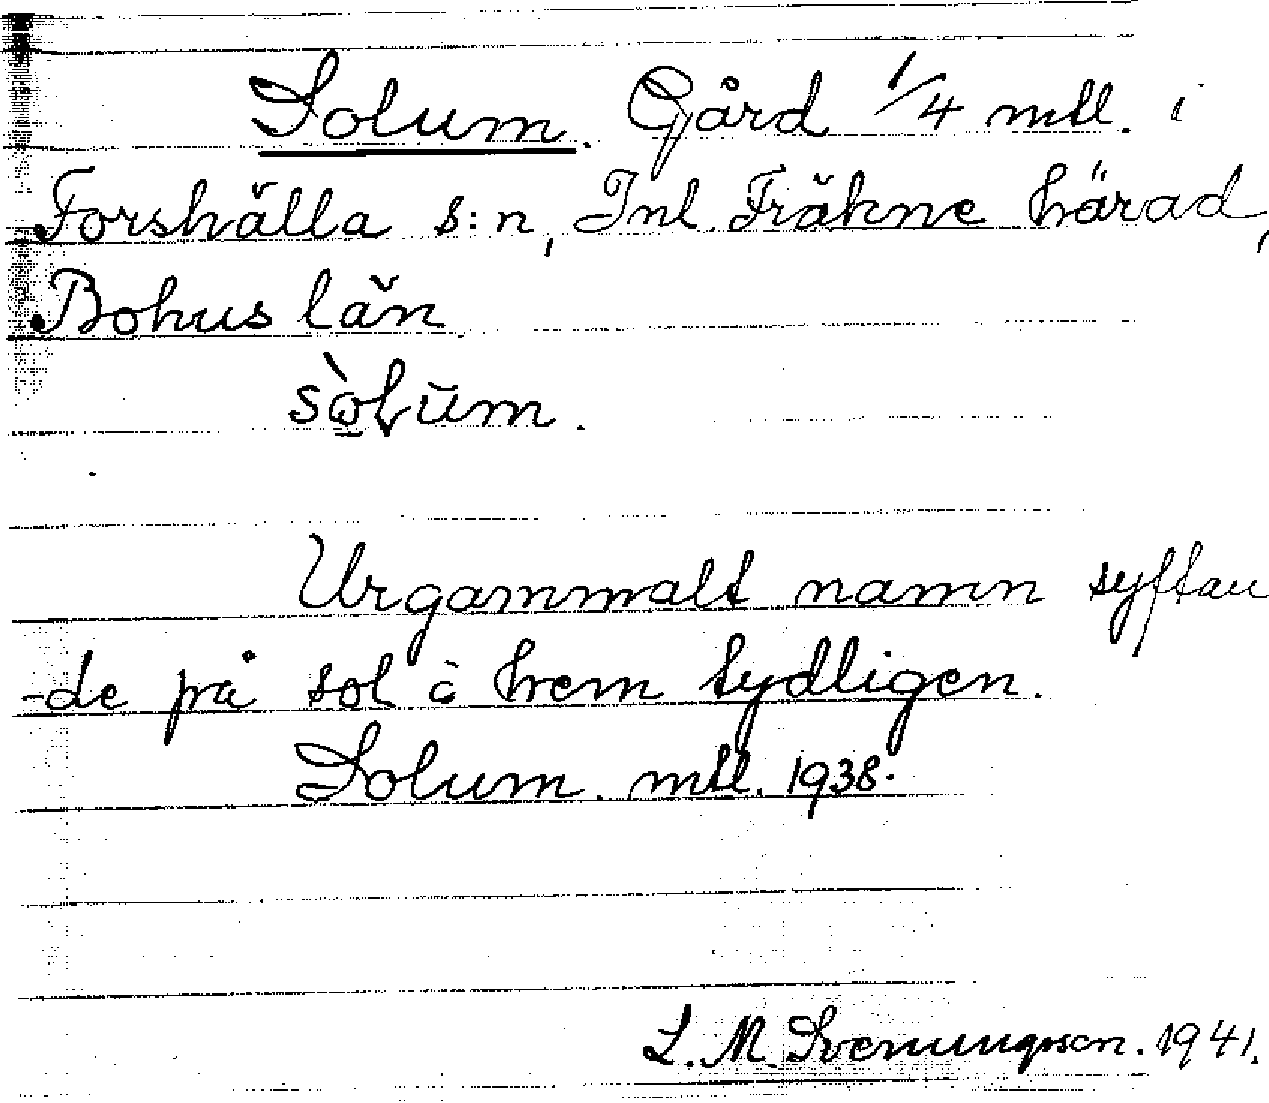 Solum. Gård 1/4 mtl. i
Forshälla s:n, Inl. Fräkne härad,
Bohus län
sò̱lŭm.
Urgammalt namn syftan
-de på sol o hem tydligen.
Solum. mtl. 1938.
L. M. Svenungsson. 1941.